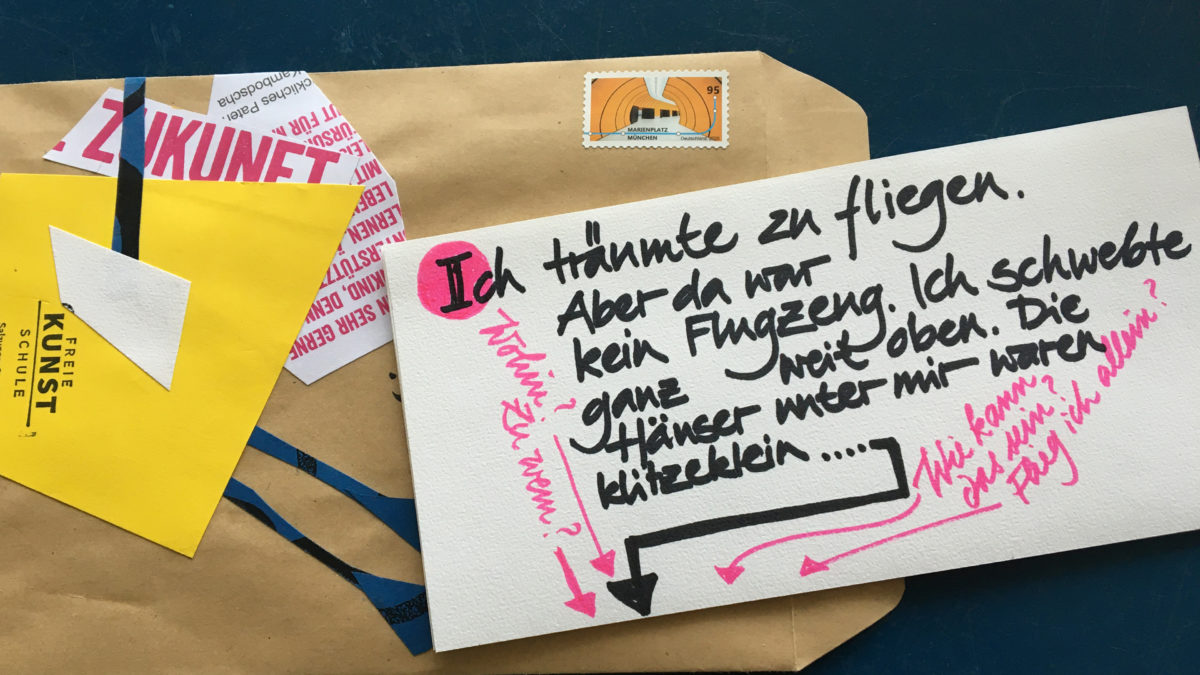 ckliches Pate
Kambodscha
ZUKUNFT
UT FÜR M
FÜRSOR
MIT
LEBEN
LERNEN
NTERSTÜTZ
KIND, DENN
N SEHR GERNE
FREIE
KUNST
SCHULE
95
MARIENPLATZ
MÜNCHEN
Deutschland
Ich träumte zu fliegen.
Aber da war
kein Flugzeug. Ich schwebte
ganz weit oben. Die
Häuser unter mir waren
klitzeklein .....
Wohin?
Zu wem?
Wie kann
das sein?
Flieg ich allein?